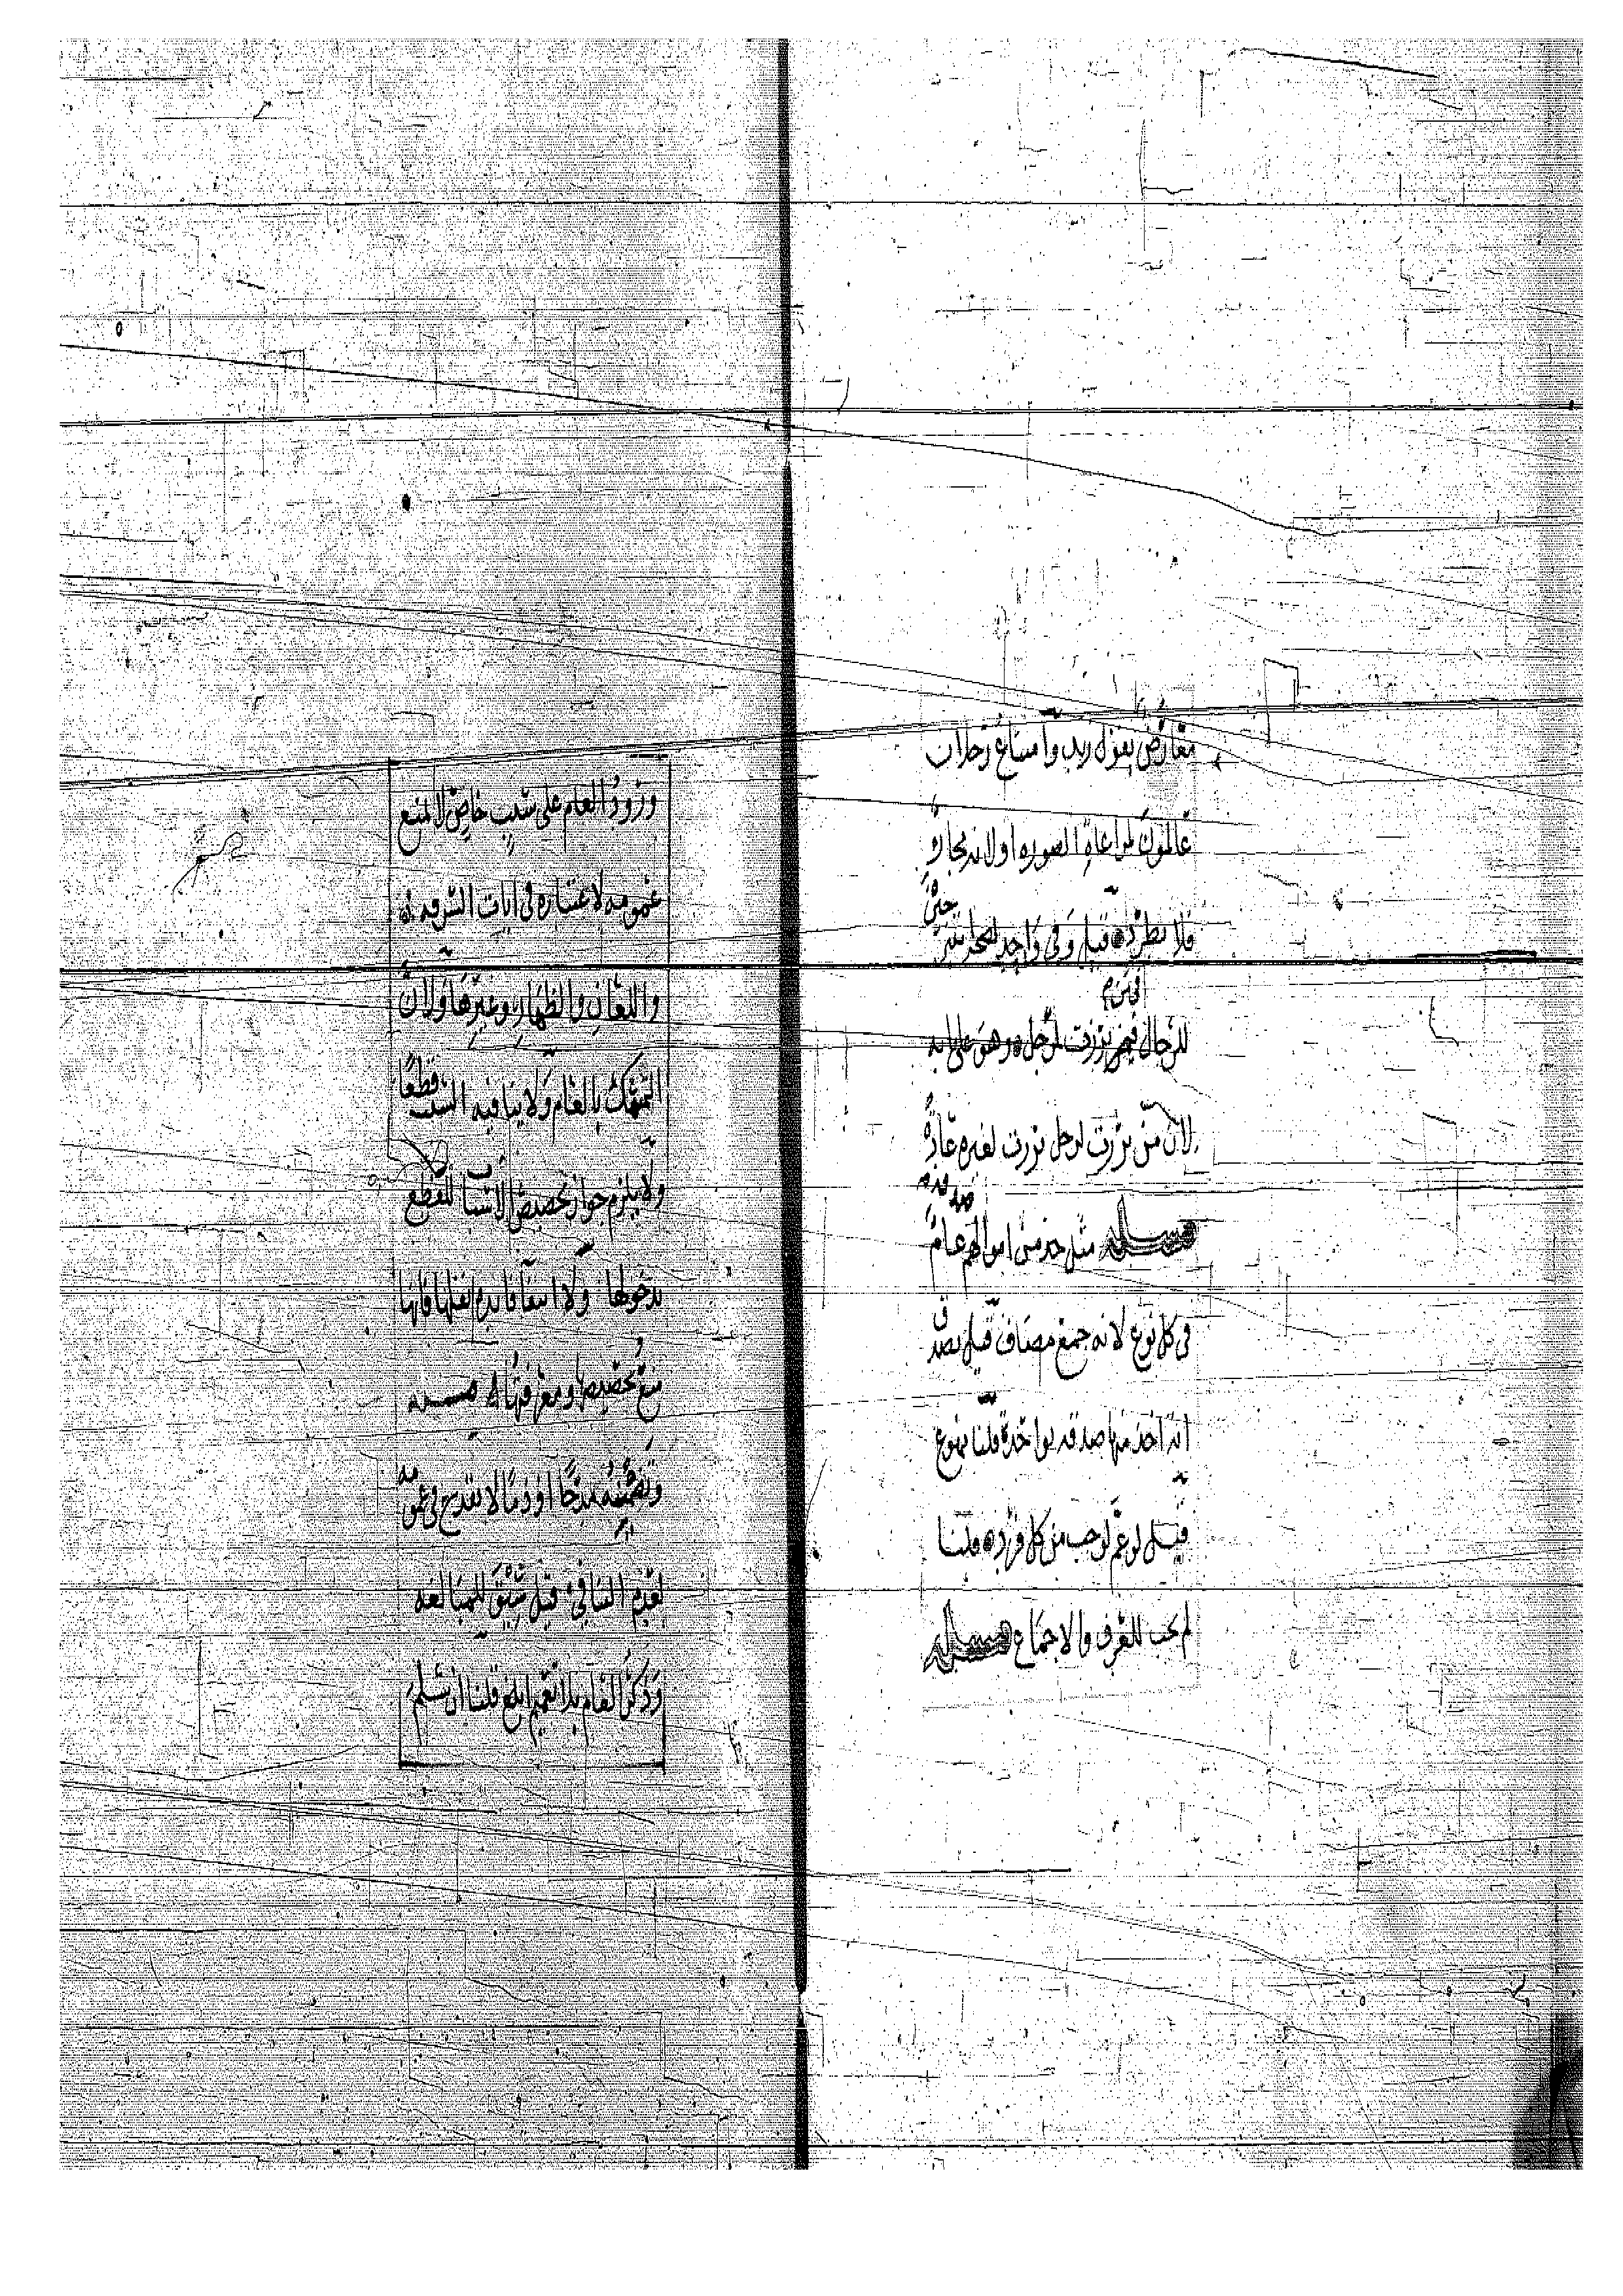 معارض بقول زيد وامتناع رجلان
عالمون لمراعاة الصوره اولانه مجازا
فلا يطرد قيل وفى واحد لتحسين
للرجال فيمن برزت لرجل وهو على بابه
لان من برزت لرجل برزت لغيره عادة
مسله مثل خذ من اموالهم صدقه عام
فى كل نوع لانه جمع مضاف قيل يصدق
انه اخذ منها صدقه بواحدة قلنا ممنوع
قيل لو عم لوجب من كل فرد قلنا
لم يجب للعرف والاجماع مسله
ورود العام على سبب خاص لا يمنع
عمومه لاعتباره فى ايات السرقه
واللعان والظهار وغيرها ولان
التمسك بالعام ولا ينافيه السبب قطعا
ولا يلزم جواز تخصيص الاسباب للقطع
بدخولها ولا انتفا فايدة نقلها فانها
منع تخصيصها ومعرفتها مسله
وتضمنه مدحا او ذما لا يقدح فى عمومه
لعدم التنافى قيل سيق للمبالغه
وذكر العام بلا تعميم ابلغ قلنا ان سلم